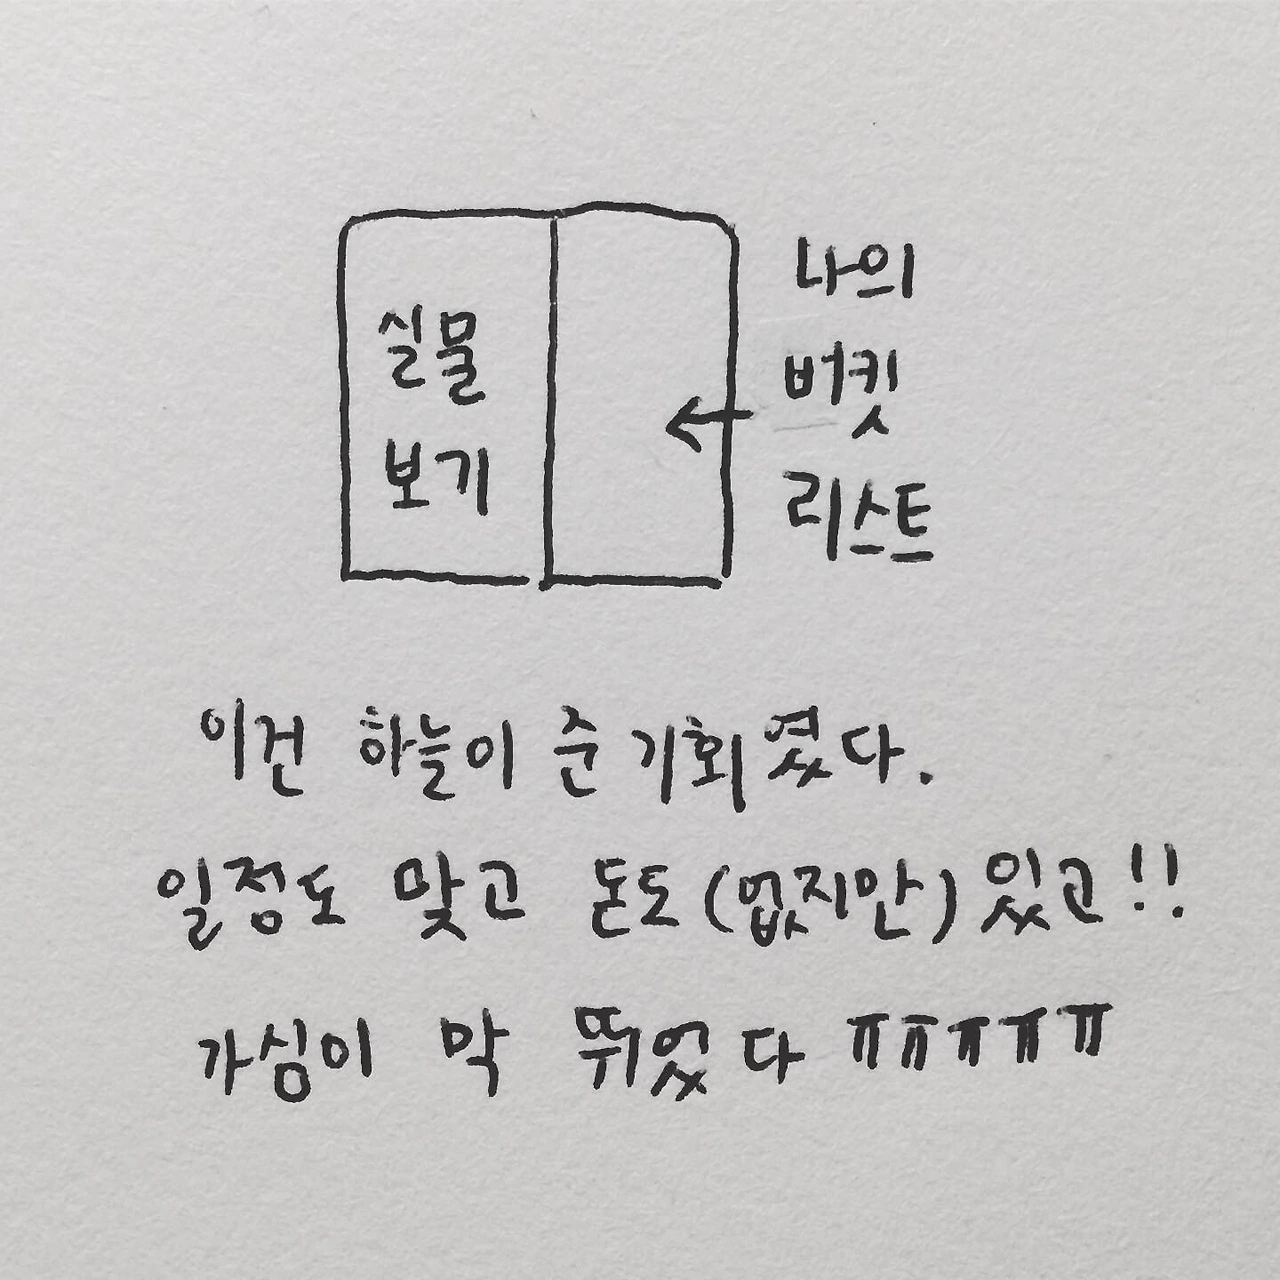 실물
보기
나의
버킷
리스트
이건 하늘이 준 기회였다.
일정도 맞고 돈도(없지만)있고!!
가심이 막 뛰었다 ㅠㅠㅠㅠㅠ